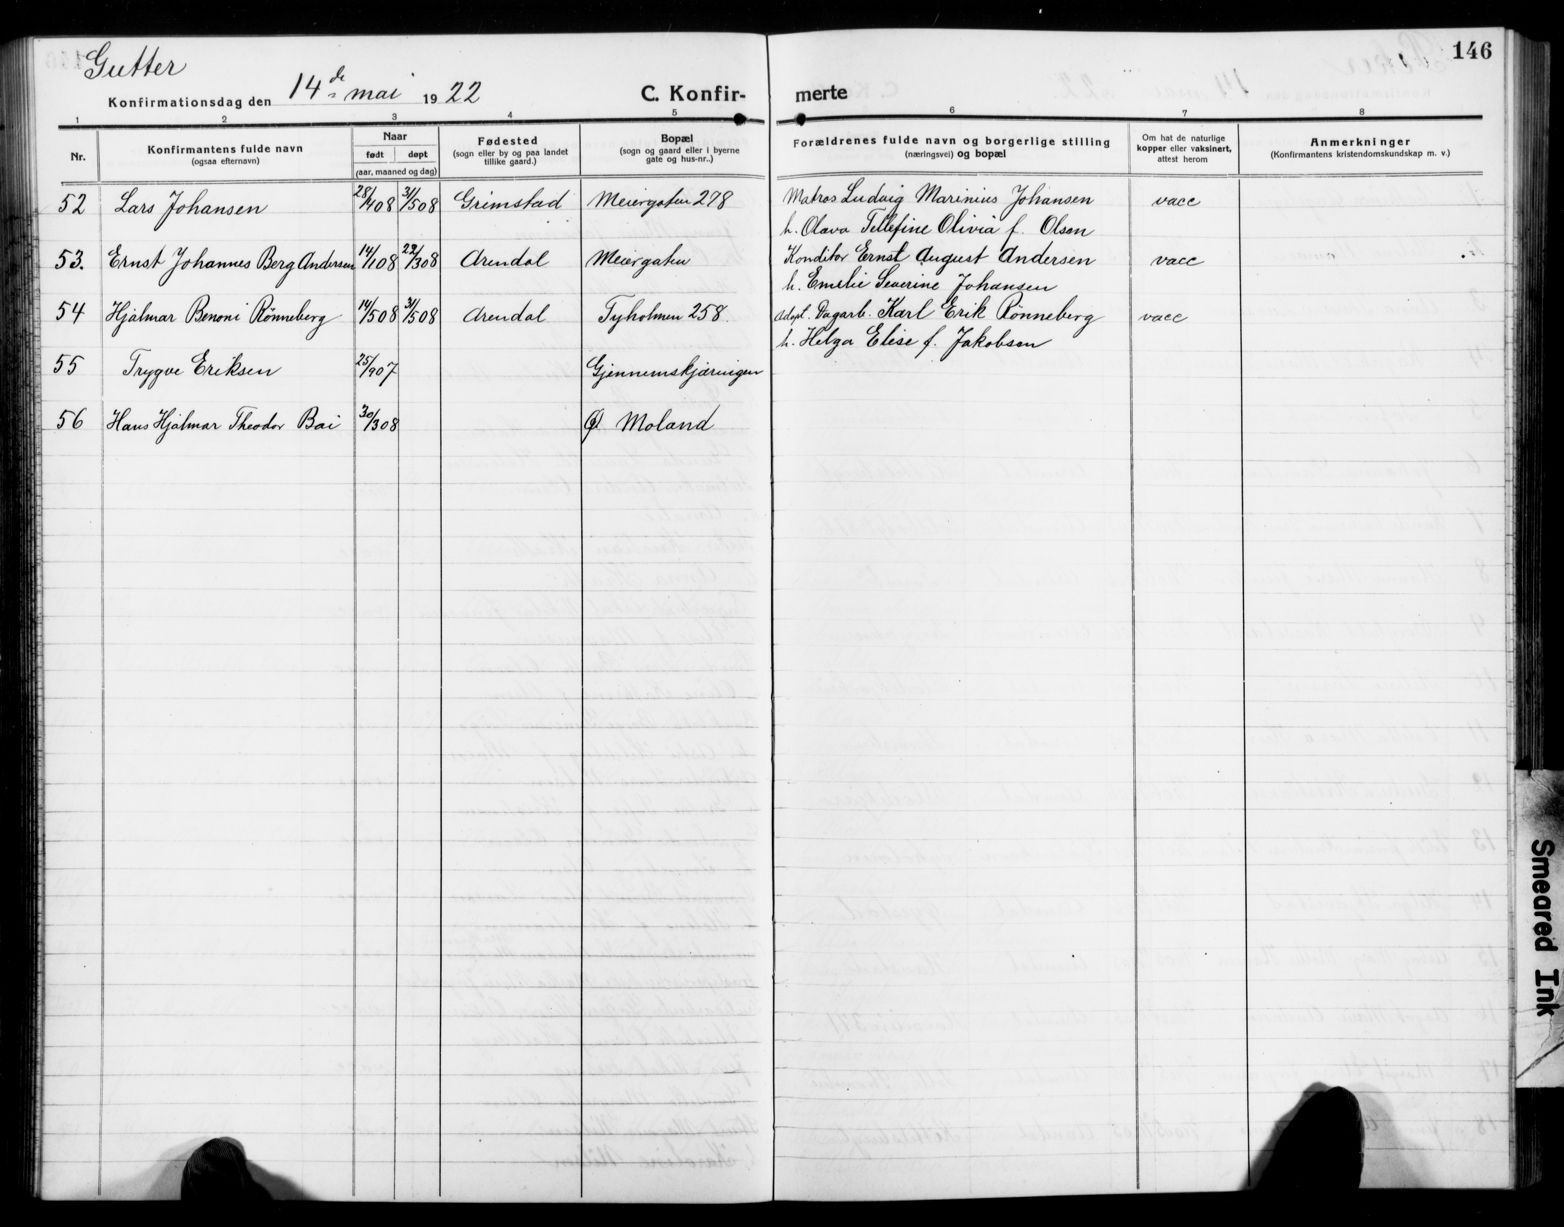 Gutter
146
Konfirmationsdag den 14de mai 1922
C. Konfirmerte
1 2 3 4 5 6 7 8
Nr.
Konfirmantens fulde navn
(ogsaa efternavn)
Naar
født døpt
(aar, maaned og dag)
Fødested
(sogn eller by og paa landet
tillike gaard.)
Bopæl
(sogn og gaard eller i byerne
gate og hus-nr..)
Forældrenes fulde navn og borgerlige stilling
(næringsvei) og bopæl
Om hat de naturlige
kopper eller vaksinært,
attest herom
Anmerkninger
(Konfirmantens kristendomskundskap m. v.)
52 Lars Johansen 28/4 08 31/5 08 Grimstad Meiergaten 278 Matros Ludvig Marinius Johansen vacc
h. Olava Tellefine Olivia f. Olsen
53. Ernst Johannes Berg Andersen 14/1 08 22/3 08 Arendal Meiergaten Konditor Ernst August Andersen vacc
h. Emelie Severine Johansen
54 Hjalmar Benoni Rønneberg 14/5 08 31/5 08 Arendal Tyholmen 258 adopt. Dagarb. Karl Erik Rønneberg vacc
h. Helga Elise f. Jakobsen
55 Trygve Eriksen 25/9 07 Gjennemskjæringen
56 Hans Hjalmar Theodor Boi 30/3 08 Ø Moland
Smeared Ink